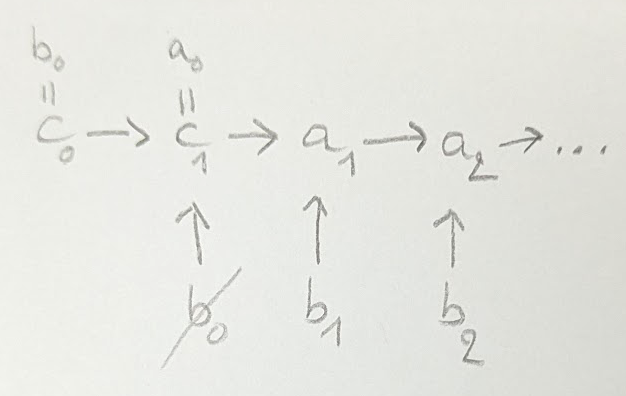 b₀ a₀
= =
c₀ → c₁ → a₁ → a₂ → ...
↑ ↑ ↑
b₀ b₁ b₂